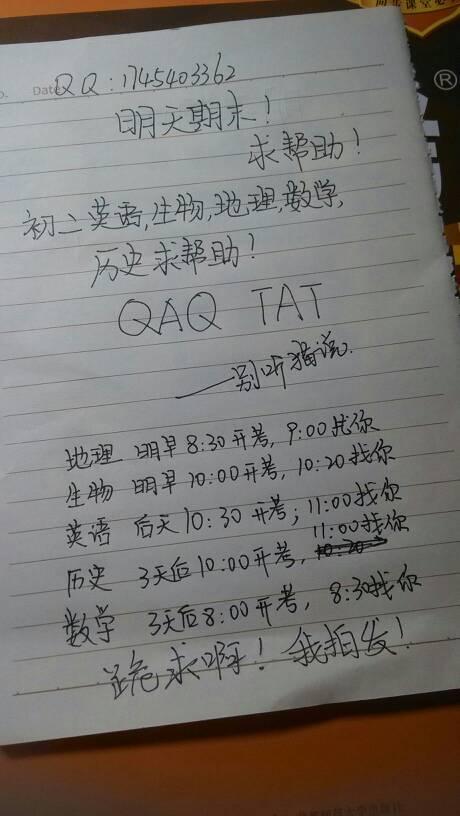 Date
QQ:1745403362
明天期末!
求帮助!
初二英语,生物,地理,数学,
历史求帮助!
QAQ TAT
——别听猫说.
地理 明早8:30开考,9:00找你
生物 明早10:00开考,10:20找你
英语 后天10:30开考;11:00找你
历史 3天后10:00开考,11:00找你
数学 3天后8:00开考,8:30找你
跪求啊!我拍发!
®